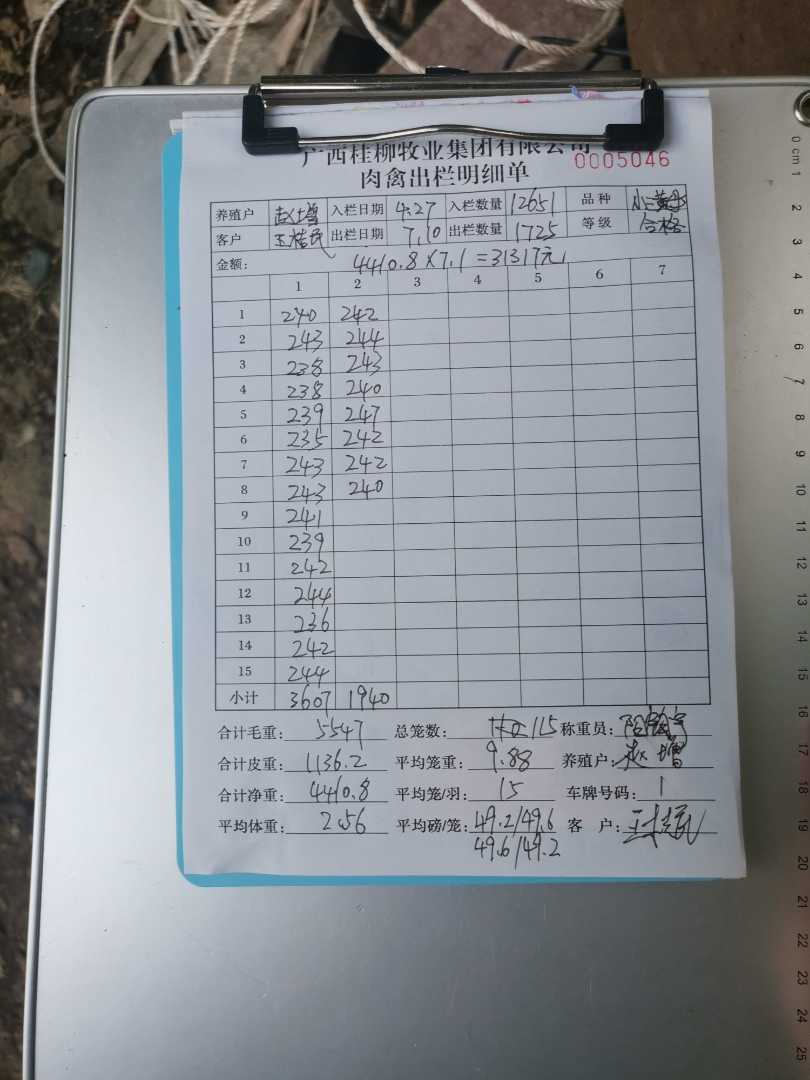 广西桂柳牧业集团有限公司
0005046
肉禽出栏明细单
养殖户 赵增 入栏日期 4.27 入栏数量 12651 品种
客户 出栏日期 7.10 出栏数量 1725 等级 合格
金额: 4410.8×7.1=31317元
1 2 3 4 5 6 7
1 240 242
2 243 244
3 238 243
4 238 240
5 239 247
6 235 242
7 243 242
8 243 240
9 241
10 239
11 242
12 244
13 236
14 242
15 244
小计 3607 1940
合计毛重: 5547 总笼数: 115 称重员:
合计皮重: 1136.2 平均笼重: 9.88 养殖户: 赵增
合计净重: 4410.8 平均笼/羽: 15 车牌号码: 1
平均体重: 2.56 平均磅/笼: 49.2/49.6 客 户:
49.6/49.2
0 cm 1 2 3 4 5 6 7 8 9 10 11 12 13 14 15 16 17 18 19 20 21 22 23 24 25